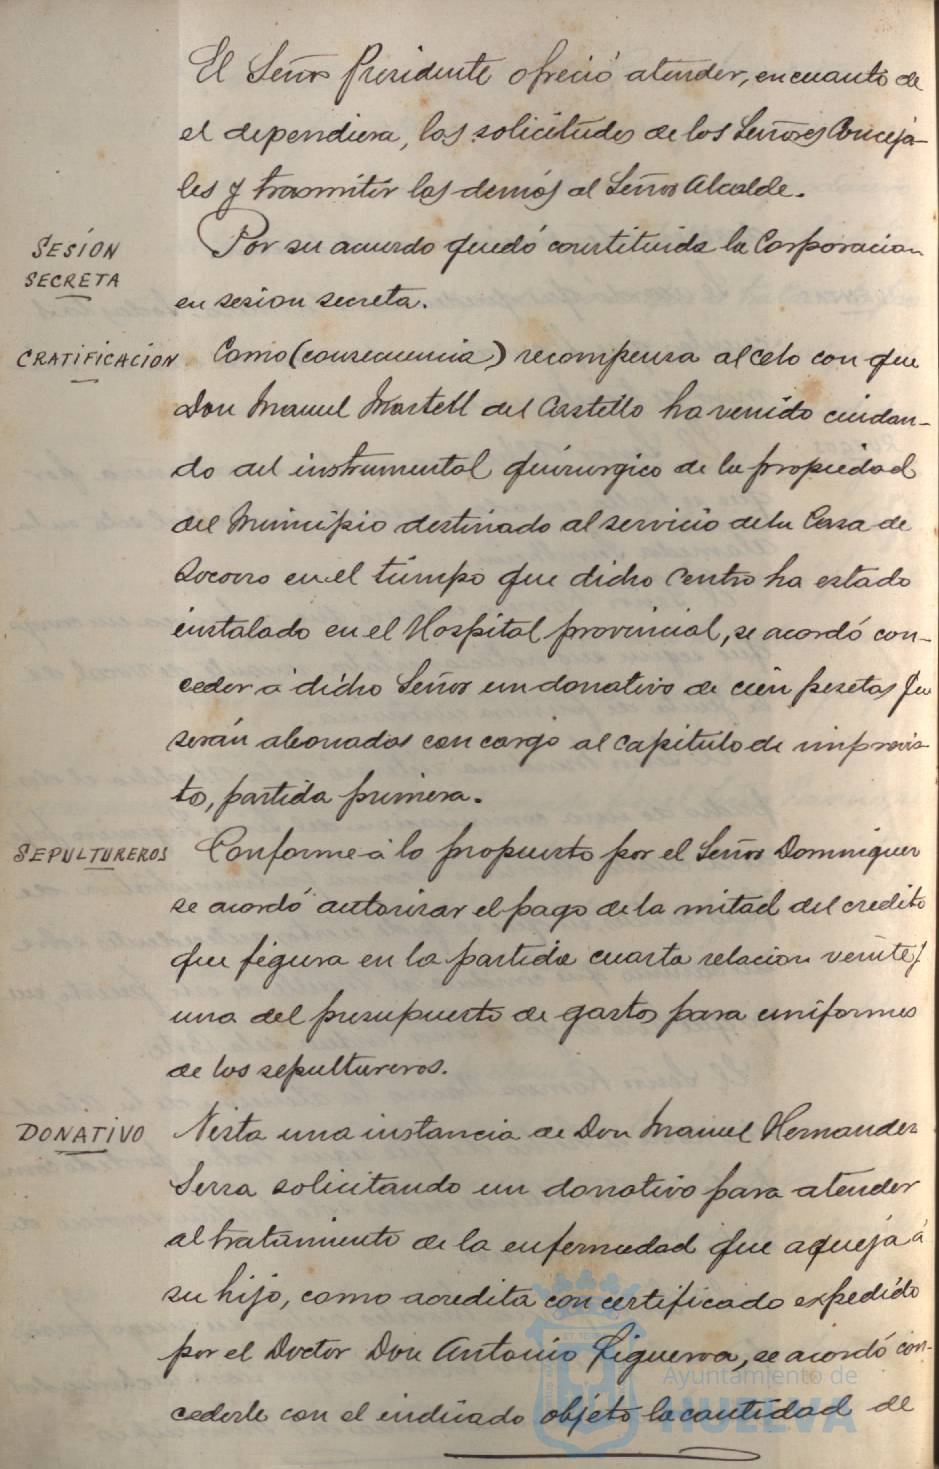 El Señor Presidente ofreció atender, en cuanto de
el dependiera, las solicitudes de los Señores Conceja-
les y trasmitir las demás al Señor Alcalde.
SESIÓN
SECRETA
Por su acuerdo quedó constituida la Corporacion
en sesion secreta.
GRATIFICACION
Como (consecuencia) recompensa al celo con que
Don Manuel Martell del Castillo ha venido cuidan-
do del instrumental quirurgico de la propiedad
del Municipio destinado al servicio de la Casa de
Socorro en el tiempo que dicho Centro ha estado
instalado en el Hospital provincial, se acordó con-
ceder á dicho Señor un donativo de cien pesetas que
serán abonadas con cargo al capitulo de imprevis-
to, partida primera.
SEPULTUREROS
Conforme á lo propuesto por el Señor Dominguez
se acordó autorizar el pago de la mitad del credito
que figura en la partida cuarta relacion veinte y
una del presupuesto de gastos para uniformes
de los sepultureros.
DONATIVO
Vista una instancia de Don Manuel Hernandez
Serra solicitando un donativo para atender
al tratamiento de la enfermedad que aqueja á
su hijo, como acredita con certificado expedido
por el Doctor Don Antonio Figueroa, se acordó con-
cederle con el indicado objeto la cantidad de
Ayuntamiento de
HUELVA